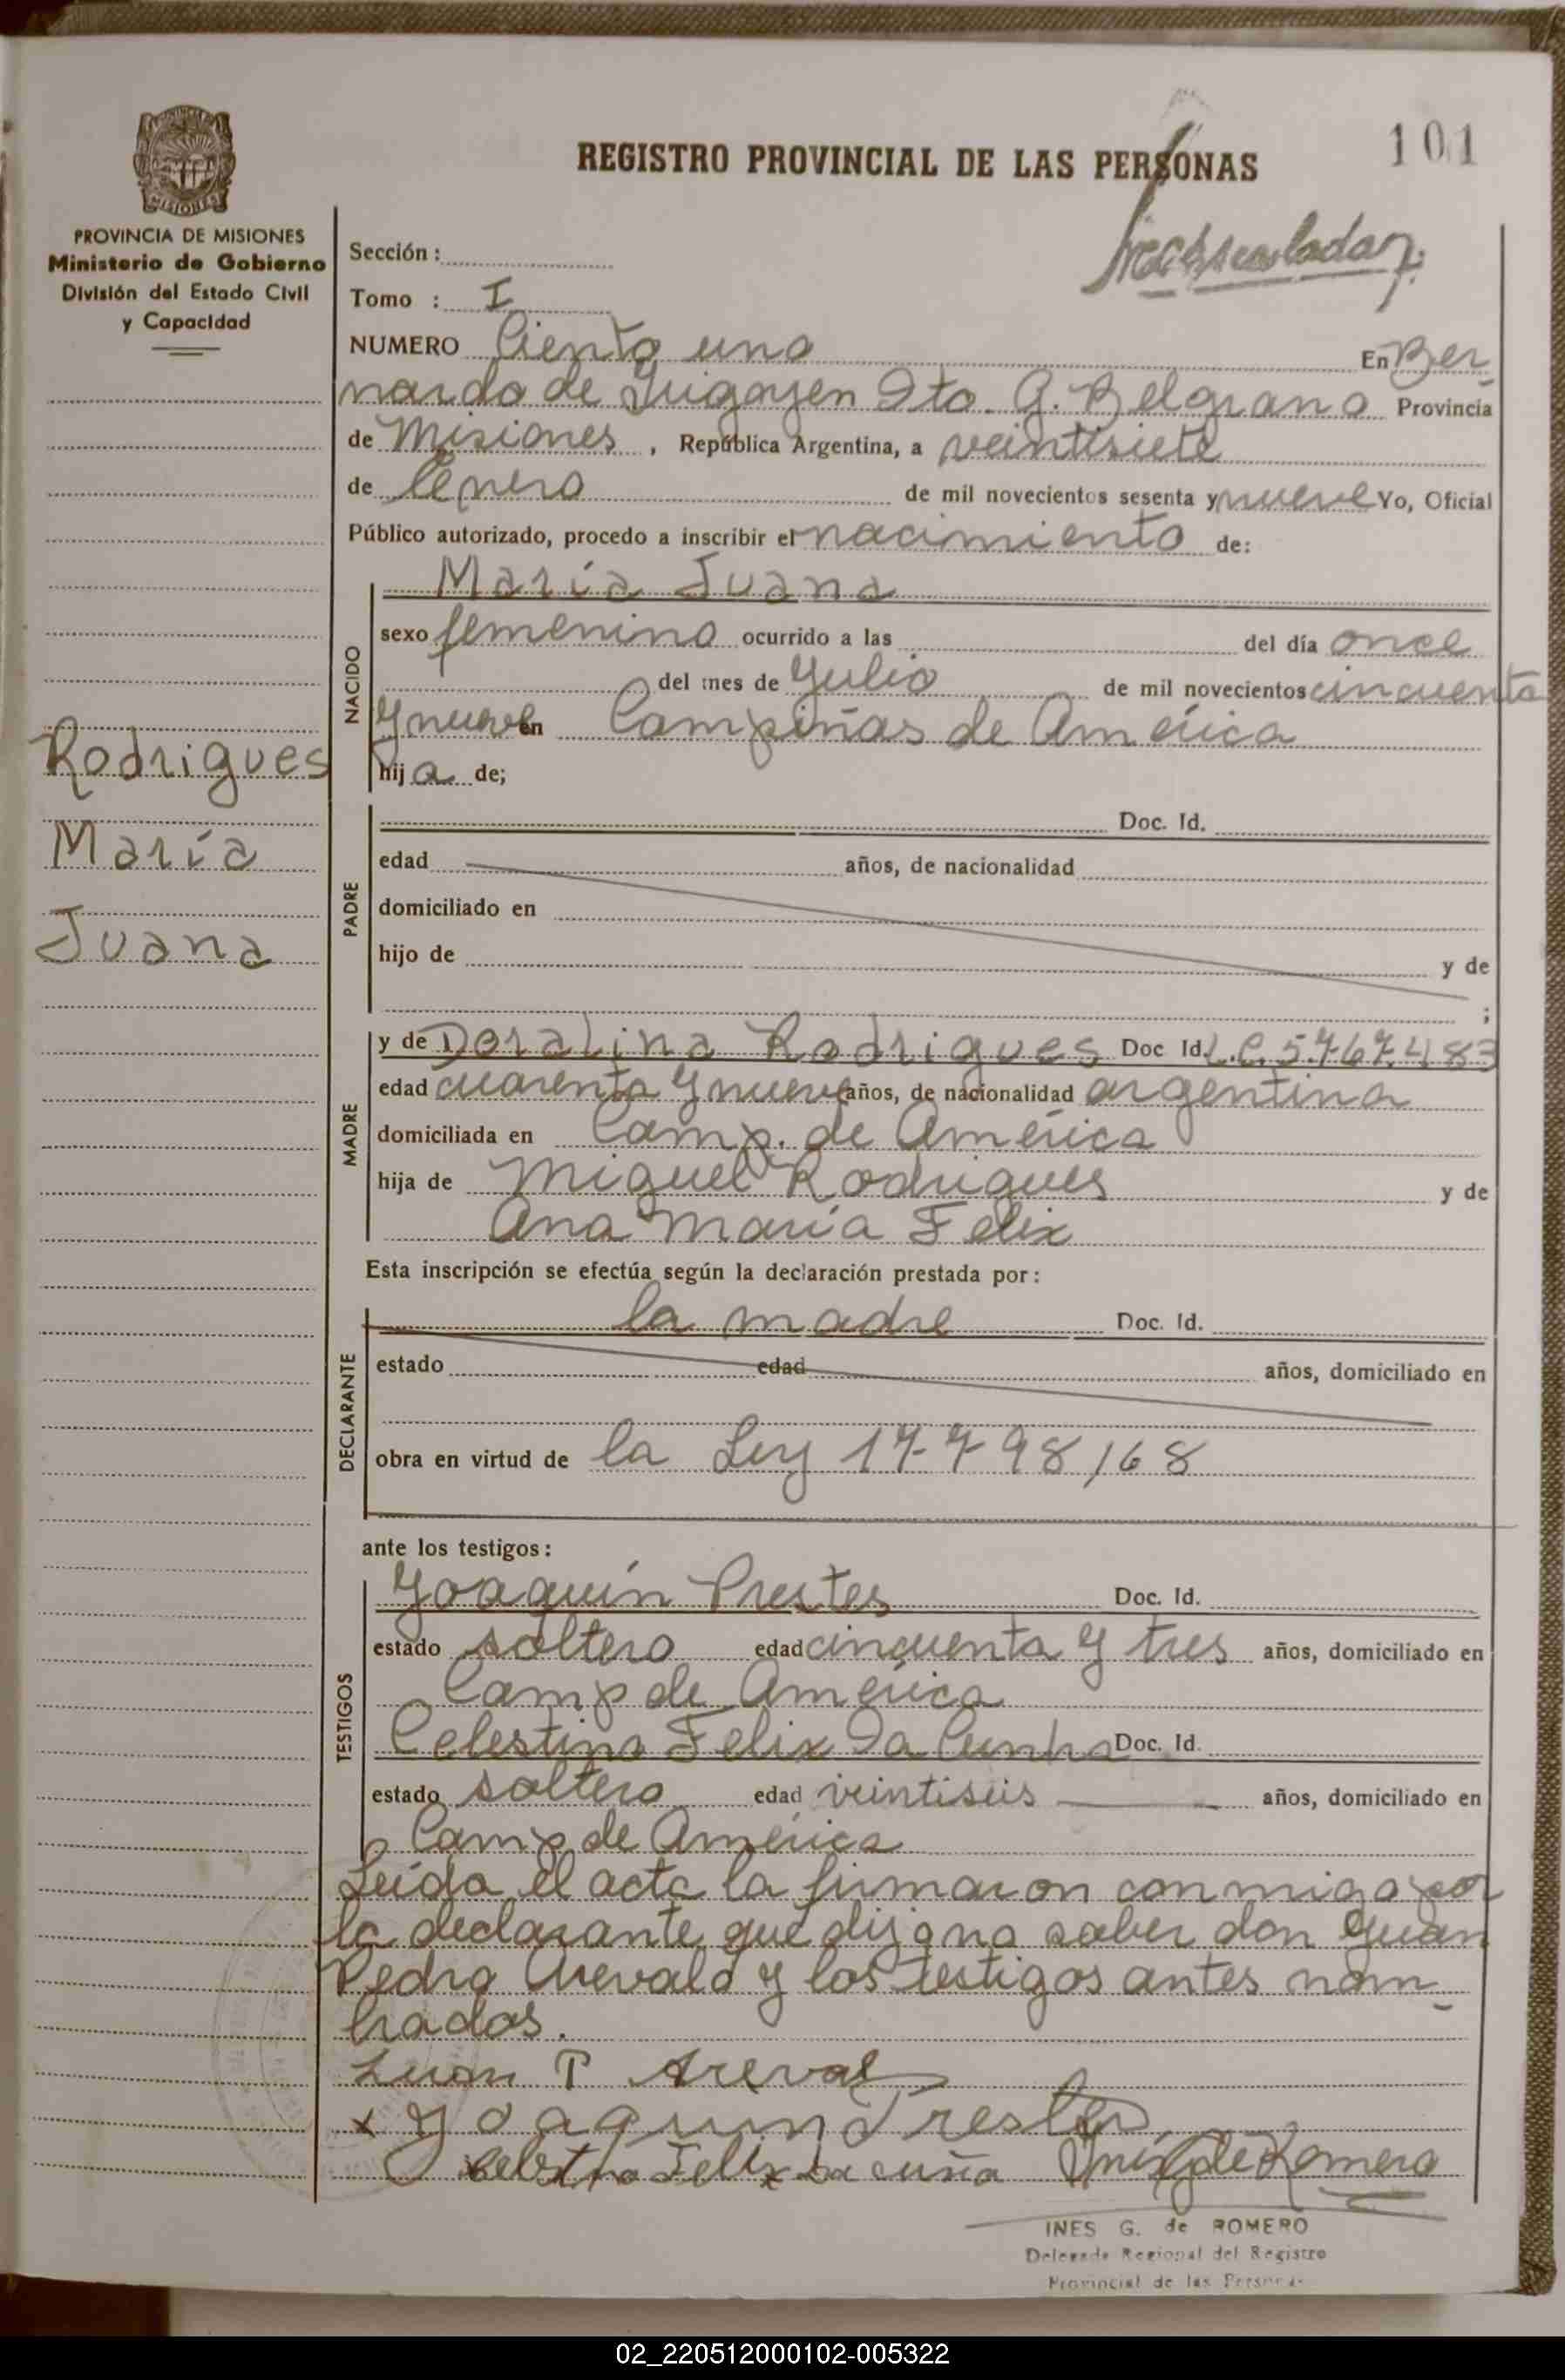 REGISTRO PROVINCIAL DE LAS PERSONAS
101
MISIONES
PROVINCIA DE MISIONES
Ministerio de Gobierno
División del Estado Civil
y Capacidad
Sección :
Tomo : I
NUMERO Ciento uno En Ber-
nardo de Yrigoyen Dto. G. Belgrano Provincia
de Misiones , República Argentina, a veintisiete
de Enero de mil novecientos sesenta y nueve Yo, Oficial
Público autorizado, procedo a inscribir el nacimiento de:
NACIDO
María Juana
sexo femenino ocurrido a las del día once
del mes de Julio de mil novecientos cincuenta
y nueve en Campiñas de América
hija de;
Rodrigues
María
Juana
PADRE
Doc. Id.
edad años, de nacionalidad
domiciliado en
hijo de y de
;
MADRE
y de Doralina Rodrigues Doc Id. L.C. 5.767.483
edad cuarenta y nueve años, de nacionalidad argentina
domiciliada en Camp. de América
hija de Miguel Rodrigues y de
Ana María Felix
Esta inscripción se efectúa según la declaración prestada por :
DECLARANTE
la madre Doc. Id.
estado edad años, domiciliado en
obra en virtud de la Ley 17.798/68
ante los testigos :
TESTIGOS
Yoaquín Prestes Doc. Id.
estado soltero edad cincuenta y tres años, domiciliado en
Camp de América
Celestino Felix Da Cunha Doc. Id.
estado soltero edad veintiseis años, domiciliado en
Camp de América
Leída el acta la firmaron conmigo por
la declarante que dijo no saber don Juan
Pedro Arevalo y los testigos antes nom-
brados.
Juan P Areval
x Yoaquin Prestes
Celestino Felix Da cuña Inés G de Romero
INES G. de ROMERO
Delegada Regional del Registro
Provincial de las Personas
02_220512000102-005322